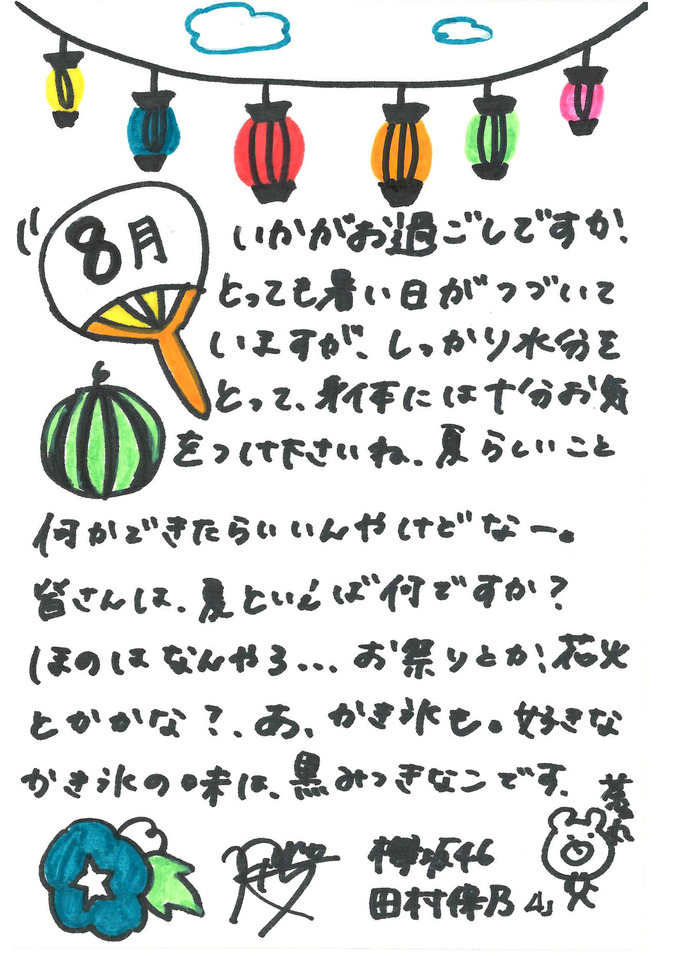 8月
いかがお過ごしですか!
とっても暑い日がつづいて
いますが、しっかり水分を
とって、身体には十分お気
をつけ下さいね。夏らしいこと
何かできたらいいんやけどなー。
皆さんは、夏といえば何ですか?
ほのはなんやろ...お祭りとか!花火
とかかな?、あ、かき氷も。好きな
かき氷の味は、黒みつきなこです。
Hono
欅坂46
田村保乃より